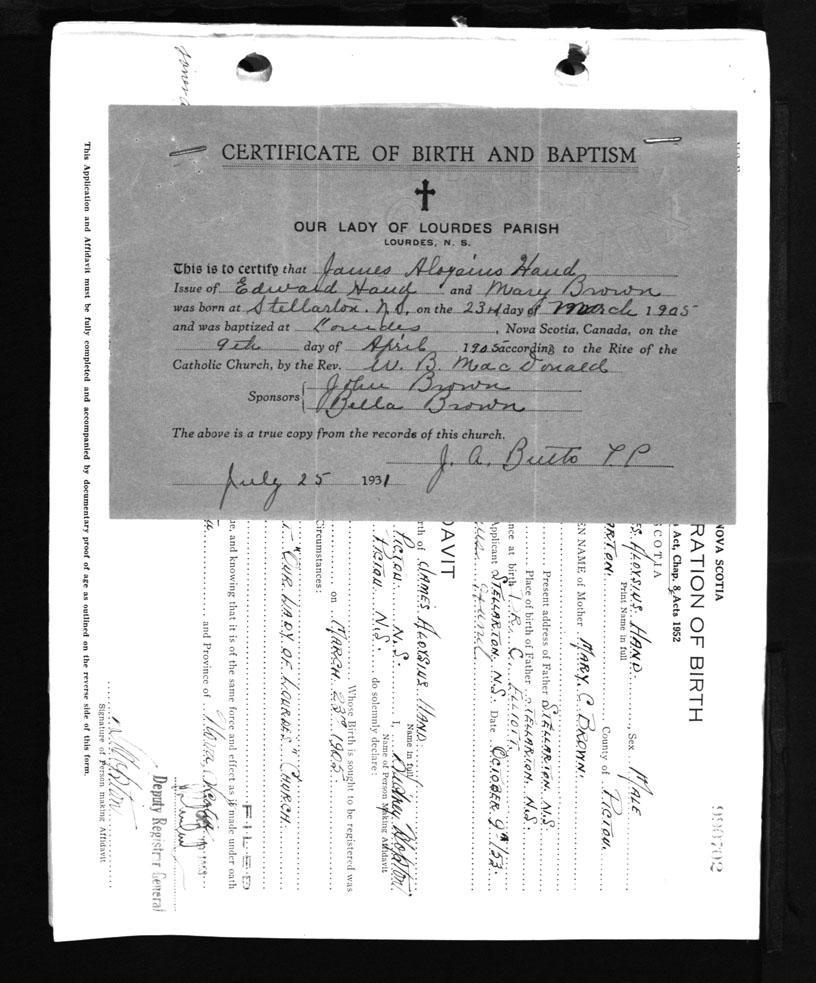 CERTIFICATE OF BIRTH AND BAPTISM
OUR LADY OF LOURDES PARISH
LOURDES, N. S.
This is to certify that James Aloysius Hand
Issue of Edward Hand and Mary Brown
was born at Stellarton. N.S, on the 23rd day of March 1905
and was baptized at Lourdes, Nova Scotia, Canada, on the
9th day of April 1905 according to the Rite of the
Catholic Church, by the Rev. W. B. MacDonald
Sponsors John Brown
Bella Brown
The above is a true copy from the records of this church.
J. A. Butts P.P
July 25 1931
NOVA SCOTIA
RATION OF BIRTH
Act, Chap. 8, Acts 1952
SCOTIA
ES ALOYSIUS HAND, Sex MALE
Print Name in full
ARTON. County of PICTOU.
EN NAME of Mother MARY. C. BROWN.
Present address of Father STELLARTON. N.S.
Place of birth of Father STELLARTON. N.S.
nce at birth DR. C. ELLIOTT.
Applicant STELLARTON. N.S. Date OCTOBER 9th/53.
DAVIT
rth of JAMES ALOYSIUS HAND.
Name in full
PICTOU N.S. I, Audrey
Name of Person Making Affidavit
PICTOU N.S. do solemnly declare:
Whose Birth is sought to be registered was
on MARCH 23rd 1905.
Circumstances:
"OUR LADY OF LOURDES" CHURCH.
ue, and knowing that it is of the same force and effect as if made under oath
FILED
and Province of Nova Scotia
Deputy Registrar General
Signature of Person making Affidavit
This Application and Affidavit must be fully completed and accompanied by documentary proof of age as outlined on the reverse side of this form.
990702